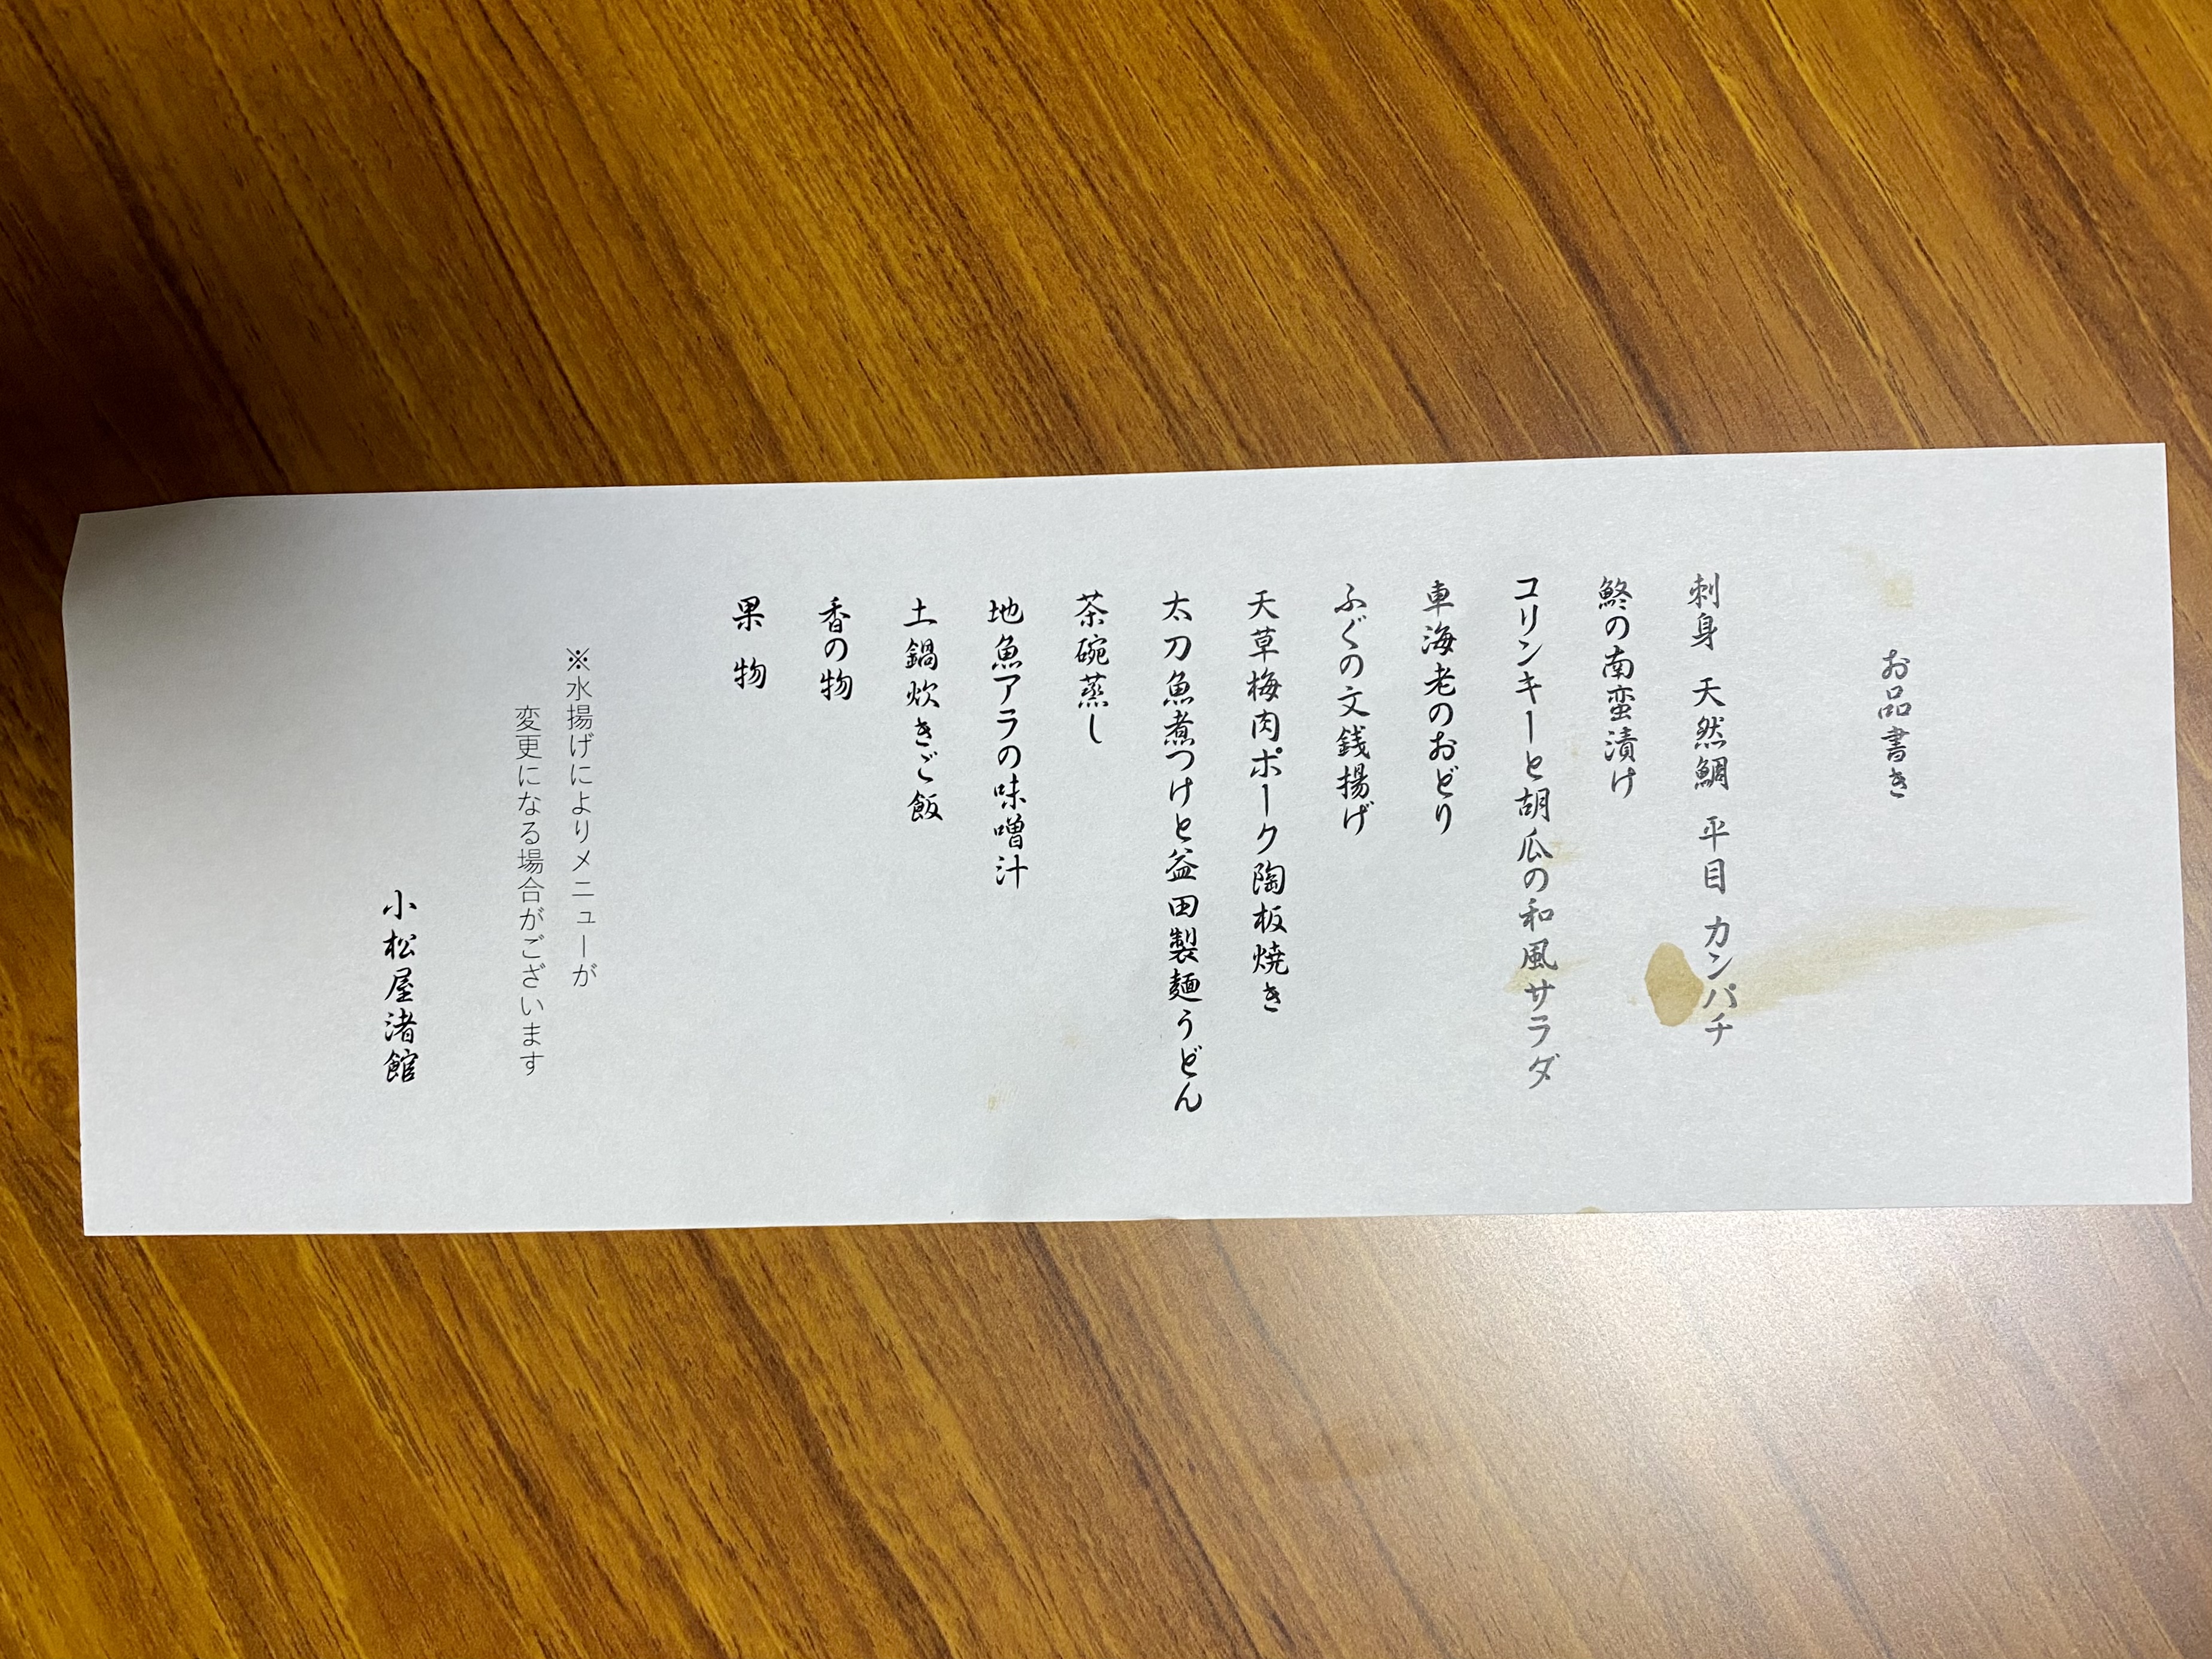 お品書き
刺身 天然鯛 平目 カンパチ
鮗の南蛮漬け
コリンキーと胡瓜の和風サラダ
車海老のおどり
ふぐの文銭揚げ
天草梅肉ポーク陶板焼き
太刀魚煮つけと益田製麺うどん
茶碗蒸し
地魚アラの味噌汁
土鍋炊きご飯
香の物
果物
※水揚げによりメニューが
変更になる場合がございます
小松屋渚館